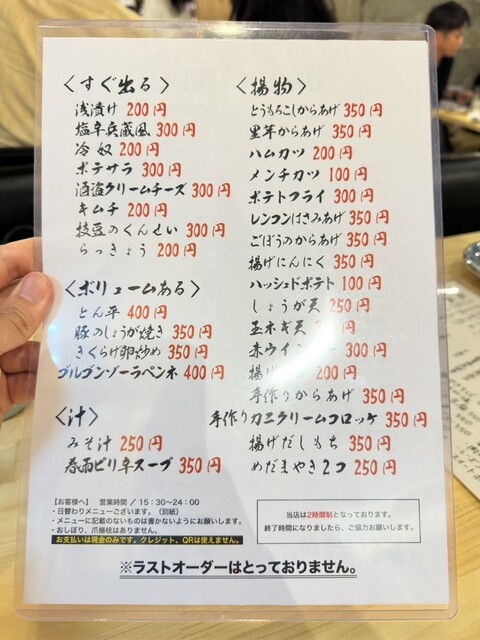 〈すぐ出る〉
浅漬け 200円
塩辛兵蔵風 300円
冷奴 200円
ポテサラ 300円
酒盗クリームチーズ 300円
キムチ 200円
枝豆のくんせい 300円
らっきょう 200円
〈ボリュームある〉
とん平 400円
豚のしょうが焼き 350円
きくらげ卵炒め 350円
ゴルゴンゾーラペンネ 400円
〈汁〉
みそ汁 250円
春雨ピリ辛スープ 350円
〈揚物〉
とうもろこしからあげ 350円
里芋からあげ 350円
ハムカツ 200円
メンチカツ 100円
ポテトフライ 300円
レンコンはさみあげ 350円
ごぼうのからあげ 350円
揚げにんにく 350円
ハッシュドポテト 100円
しょうが天 250円
玉ネギ天 円
赤ウインナー 300円
揚げ 200円
手作りからあげ 350円
手作りカニクリームコロッケ 350円
揚げだしもち 350円
めだまやき2コ 250円
【お客様へ】 営業時間 / 15：30〜24：00
・日替わりメニューございます。（別紙）
・メニューに記載のないものは書かないようにお願いします。
・おしぼり、爪楊枝はありません。
お支払いは現金のみです。クレジット、QRは使えません。
当店は2時間制となっております。
終了時間になりましたら、ご協力お願いします。
※ラストオーダーはとっておりません。